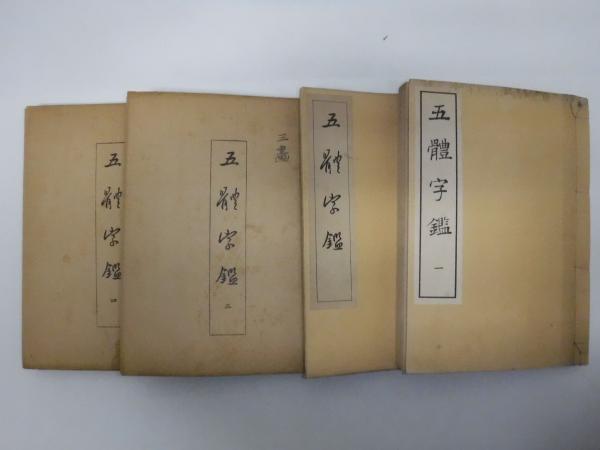 五體字鑑 一
五體字鑑
三畫
五體字鑑 二
五體字鑑 四